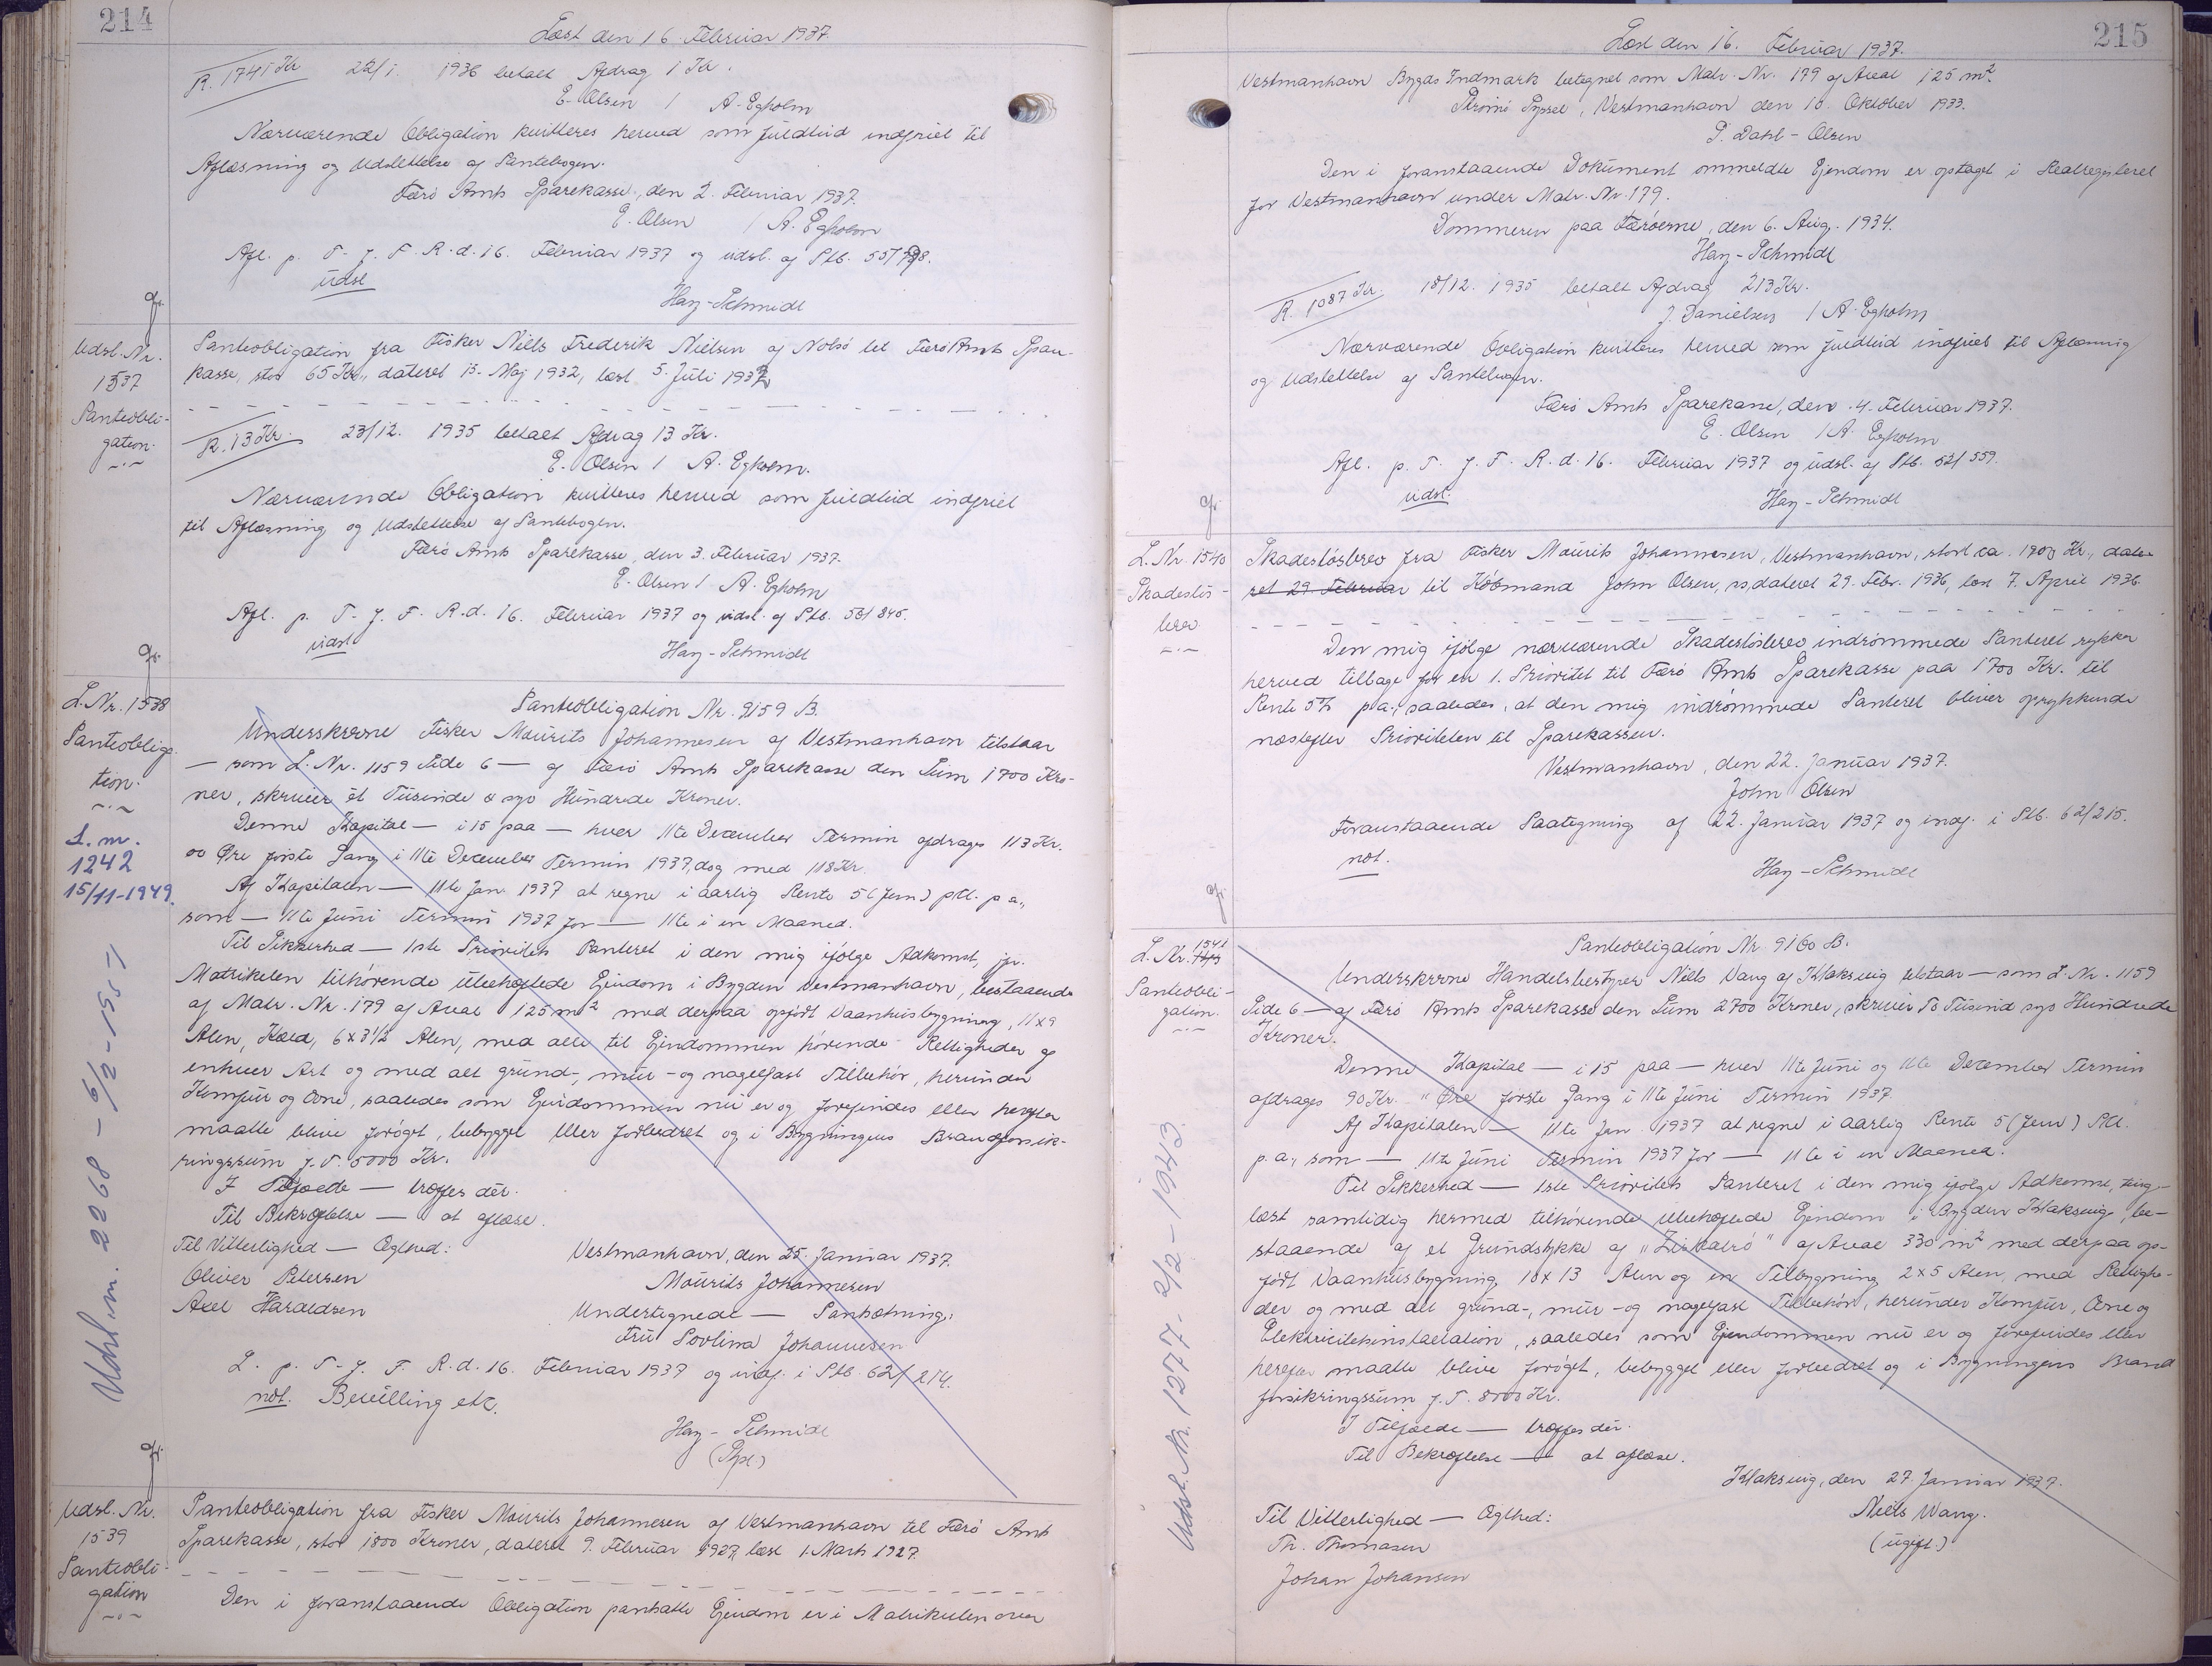 214
Læst den 16. Februar 1937.
R. 1741 Kr 22/1. 1936 betalt Afdrag 1 Kr.
E. Olsen / A. Egholm
Nærværende Obligation kvitteres herved som fuldtud indfriet til
Aflæsning og Udslettelse af Pantebogen.
Færø Amts Sparekasse, den 2. Februar 1937.
E. Olsen / A. Egholm
Afl. p. T. f. F. R. d. 16. Februar 1937 og udsl. af Ptb.
udsl
Hay-Schmidt
gr.
Udsl. Nr.
1537
Panteobli-
gation.
Panteobligation fra Fisker Niels Frederik Nielsen af Nolsö til Færö Amts Spare-
kasse, stor 65 Kr., dateret 15. Maj 1932, læst 5. Juli 1932
R. 13 Kr. 23/12. 1935 betalt Afdrag 13 Kr.
E. Olsen / A. Egholm.
Nærværende Obligation kvitteres herved som fuldtud indfriet
til Aflæsning og Udslettelse af Pantebogen.
Færö Amts Sparekasse, den 3. Februar 1937.
E. Olsen / A. Egholm
Afl. p. T. f. F. R. d. 16. Februar 1937 og udsl. af Ptb. 56/845.
udsl
Hay-Schmidt
gr.
L. Nr. 1538
Panteobliga-
tion.
L. m.
1242
15/11-1949.
Udsl. m. 2268 - 6/2-1957
Panteobligation Nr. 9159 B.
Underskrevne Fisker Maurits Johannesen af Vestmanhavn tilstaar
— som L. Nr. 1159 Side 6 — af Færö Amts Sparekasse den Sum 1700 Kro-
ner, skriver et Tusinde & syv Hundrede Kroner.
Denne Kapital — i 15 paa — hver 11te December Termin afdrages 113 Kr.
00 Øre første Gang i 11te December Termin 1937, dog med 118 Kr.
Af Kapitalen — 11te Jan. 1937 at regne i aarlig Rente 5 (fem) pCt. p. a.,
som — 11te Juni Termin 1937 for — 11te i en Maaned.
Til Sikkerhed — 1ste Prioritets Panteret i den mig ifölge Adkomst, jfr.
Matrikelen tilhörende ubehæftede Ejendom i Bygden Vestmanhavn, bestaaende
af Matr. Nr. 179 af Areal 125 m² med derpaa opført Vaanhusbygning, 11x9
Alen, Kæld, 6x3½ Alen, med alle til Ejendommen hörende Rettigheder af
enhver Art og med alt grund-, mur- og nagelfast Tilbehör, herunder
Komfur og Ovne, saaledes som Ejendommen nu er og forefindes eller herefter
maatte blive foröget, bebygget eller forbedret og i Bygningens Brandforsik-
ringssum f. T. 5000 Kr.
I Tilfælde — træffes dér.
Til Bekræftelse — at aflæse.
Til Vitterlighed — Ægthed:
Vestmanhavn, den 25. Januar 1937.
Oliver Petersen
Maurits Johannesen
Axel Haraldsen
Undertegnede — Pantsætning:
Fru Sovlina Johannesen
L. p. T. f. F. R. d. 16. Februar 1937 og indf. i Ptb. 62/214.
not. Bevilling etc.
Hay-Schmidt
gr.
Udsl. Nr.
1539
Panteobli-
gation
Panteobligation fra Fisker Maurits Johannesen af Vestmanhavn til Færö Amts
Sparekasse, stor 1800 Kroner, dateret 9. Februar 1927, læst 1. Marts 1927.
Den i foranstaaende Obligation pantsatte Ejendom er i Matrikulen over
215
Læst den 16. Februar 1937.
Vestmanhavn Bygds Indmark betegnet som Matr. Nr. 179 af Areal 125 m².
Strömö Syssel, Vestmanhavn den 10. Oktober 1933.
P. Dahl-Olsen
Den i foranstaaende Dokument ommeldte Ejendom er optaget i Realregisteret
for Vestmanhavn under Matr. Nr. 179.
Dommeren paa Færöerne, den 6. Aug. 1934.
Hay-Schmidt
R. 1087 Kr. 18/12. 1935 betalt Afdrag 213 Kr.
J. Danielsen / A. Egholm
Nærværende Obligation kvitteres herved som fuldtud indfriet til Aflæsning
og Udslettelse af Pantebogen.
Færö Amts Sparekasse, den 4. Februar 1937.
E. Olsen / A. Egholm
Afl. p. T. f. F. R. d. 16. Februar 1937 og udsl. af Ptb. 52/559.
udsl.
Hay-Schmidt
gr.
L. Nr. 1540
Skadeslös-
brev
Skadeslösbrev fra Fisker Maurits Johannesen, Vestmanhavn, stort ca. 1900 Kr., date-
ret 29. Februar til Köbmand John Olsen, dateret 29. Febr. 1936, læst 7. April 1936.
Den mig ifölge nærværende Skadeslösbrev indrömmede Panteret rykker
herved tilbage for en 1. Prioritet til Færö Amts Sparekasse paa 1700 Kr. til
Rente 5% p.a., saaledes, at den mig indrömmede Panteret bliver oprykkende
næstefter Prioriteten til Sparekassen.
Vestmanhavn, den 22. Januar 1937.
John Olsen
Foranstaaende Paategning af 22. Januar 1937 og indf. i Ptb. 62/215.
not.
Hay-Schmidt
gr.
L. Nr. 1541
Panteobli-
gation.
Udsl. Nr. 1277 - 2/2-1943.
Panteobligation Nr. 9160 B.
Underskrevne Handelsbestyrer Niels Vang af Klaksvig tilstaar — som L. Nr. 1159
Side 6 — af Færö Amts Sparekasse den Sum 2700 Kroner, skriver To Tusind syv Hundrede
Kroner.
Denne Kapital — i 15 paa — hver 11te Juni og 11te December Termin
afdrages 90 Kr. " Øre første Gang i 11te Juni Termin 1937.
Af Kapitalen — 11te Jan. 1937 at regne i aarlig Rente 5 (fem) pCt.
p.a., som — 11te Juni Termin 1937 for — 11te i en Maaned.
Til Sikkerhed — 1ste Prioritets Panteret i den mig ifölge Adkomst, ting-
læst samtidig hermed tilhörende ubehæftede Ejendom i Bygden Klaksvig, be-
staaende af et Grundstykke af af Areal 330 m² med derpaa op-
fört Vaanhusbygning, 10 x 13 Alen og en Tilbygning 2x5 Alen, med Rettighe-
der og med alt grund-, mur- og nagelfast Tilbehör, herunder Komfur, Ovne og
Elektricitetsinstallation, saaledes som Ejendommen nu er og forefindes eller
herefter maatte blive foröget, bebygget eller forbedret og i Bygningens Brand
forsikringssum f. T. 8000 Kr.
I Tilfælde — træffes dér.
Til Bekræftelse — at aflæse.
Klaksvig, den 27. Januar 1937.
Til Vitterlighed — Ægthed:
Niels Wang.
Th. Thomasen
(ugift.)
Johan Johansen